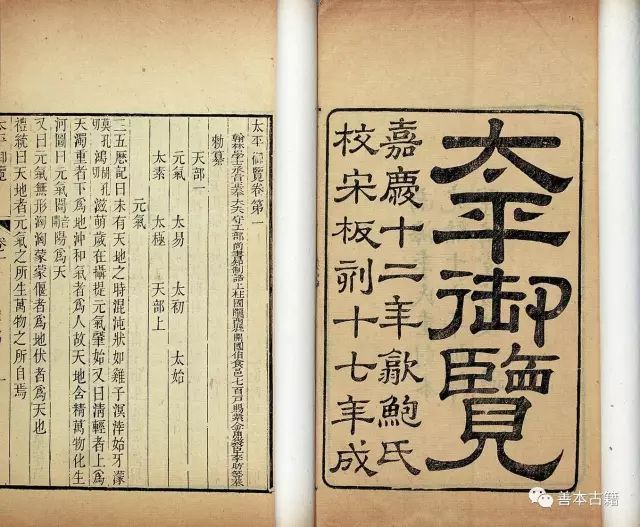 太平御覽
嘉慶十二年歙鮑氏
校宋板刋十七年成
太平御覽卷第一
翰林學士承旨正奉大夫守工部尚書知制誥上柱國隴西縣開國伯食邑七百戶賜紫金魚袋臣李昉等奉
勅纂
天部一
元氣 太易 太初 太始
太素 太極 天部上
元氣
三五厤記曰未有天地之時混沌狀如雞子溟涬始牙濛
莫孔切鴻胡孔切滋萌歲在攝提元氣肇始又曰清輕者上爲
天濁重者下爲地沖和氣者爲人故天地含精萬物化生
河圖曰元氣闓陽爲天
又曰元氣無形洶洶蒙蒙偃者爲地伏者爲天也
禮統曰天地者元氣之所生萬物之所自焉
太平御覽 卷一 一
善本古籍